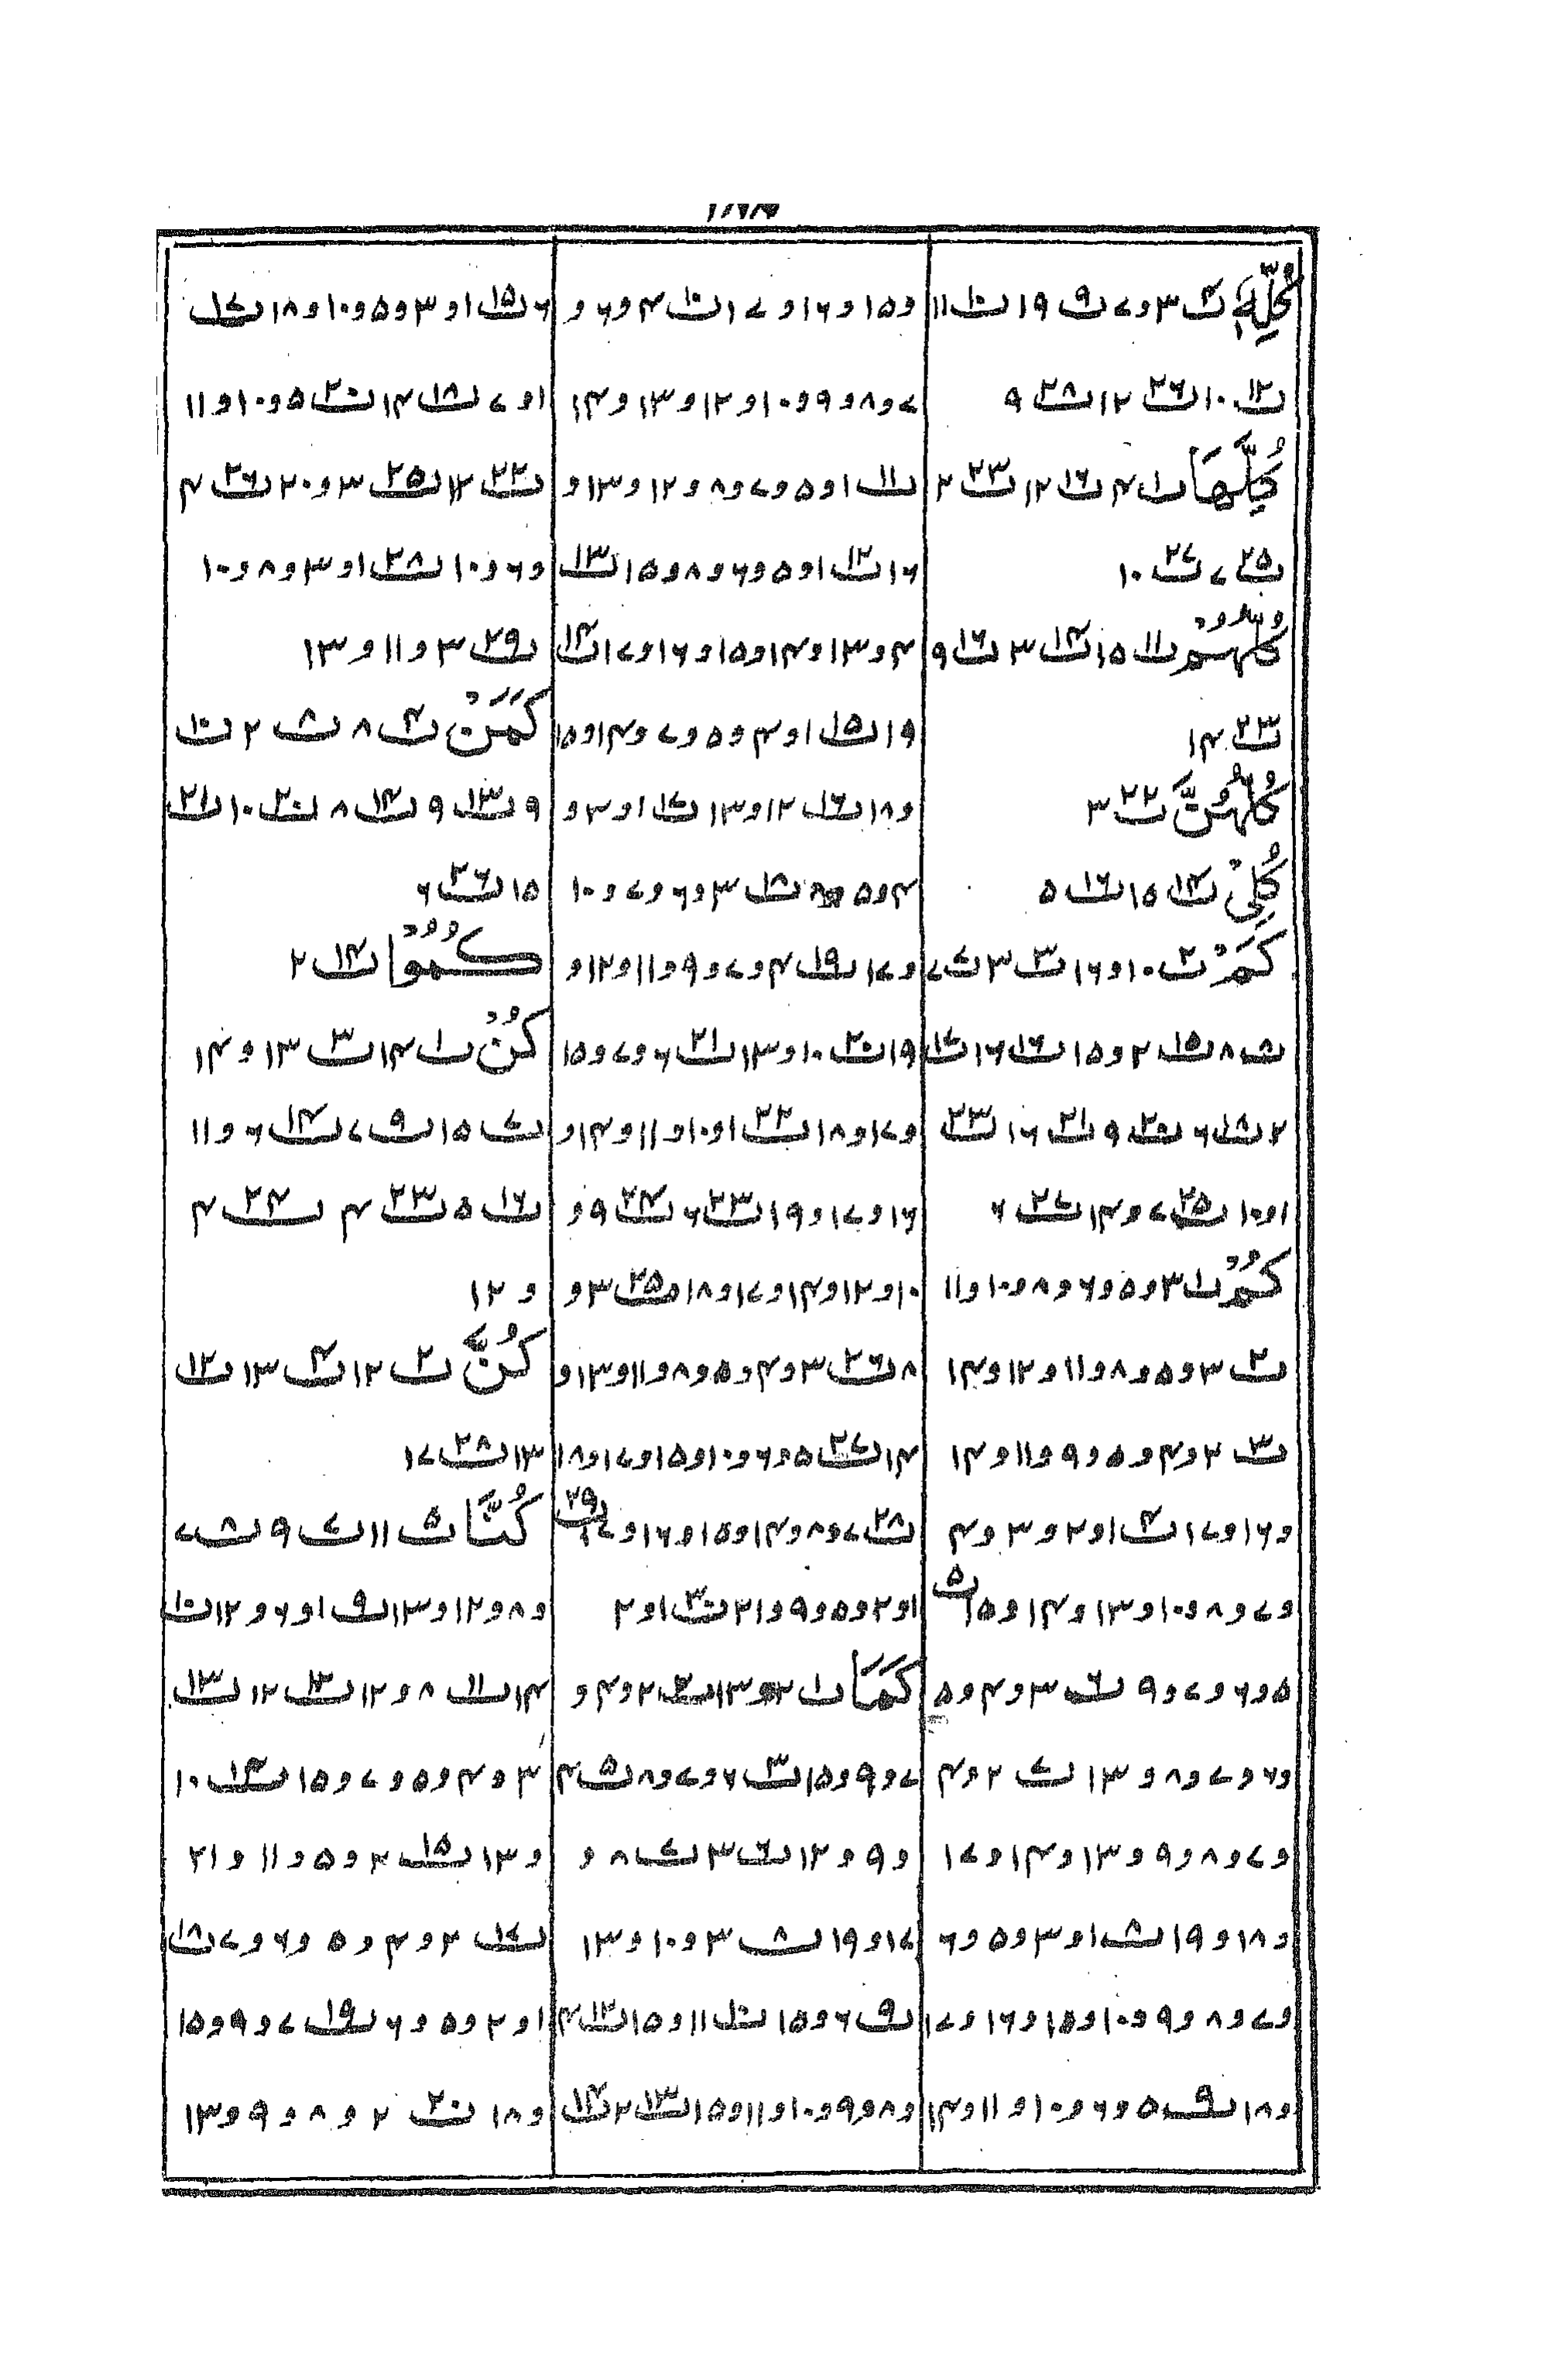 كُلِّهٖ ت۴ ۳ و ۷ ت۹ ۱۹ ت۱۰ ۱۱
ت۱۲ ۱۰ ت۲۶ ۱۲ ت۲۸ ۹
كُلَّهَا ت۱ ۴ ت۱۶ ۱۲ ت۲۳ ۲
ت۲۵ ۷ ت۲۷ ۱۰
كُلُّهُمْ ت۱۱ ۱۵ ت۱۴ ۳ ت۱۶ ۹
ت۲۳ ۱۴
كُلُّهُنَّ ت۲۲ ۳
كُلِيْ ت۱۴ ۱۵ ت۱۶ ۵
كَمْ ت۲ ۱۰ و ۱۶ ت۳ ۳ ت۷ ۷
ت۸ ۸ ت۱۵ ۲ و ۱۵ ت۱۶ ۱۶ ت۱۷
۲ ت۱۸ ۶ ت۲۰ ۹ ت۲۱ ۱۶ ت۲۳
۱ و ۱۰ ت۲۵ ۷ و ۱۴ ت۲۷ ۶
كُمْ ت۱ ۳ و ۵ و ۶ و ۸ و ۱۰ و ۱۱
ت۲ ۳ و ۵ و ۸ و ۱۱ و ۱۲ و ۱۴
ت۳ ۲ و ۴ و ۵ و ۹ و ۱۱ و ۱۴
و ۱۶ و ۱۷ ت۴ ۱ و ۲ و ۳ و ۴
و ۷ و ۸ و ۱۰ و ۱۳ و ۱۴ و ۱۵ ت۵
۵ و ۶ و ۷ و ۹ ت۶ ۳ و ۴ و ۵
و ۶ و ۷ و ۸ و ۱۳ ت۷ ۲ و ۴
و ۷ و ۸ و ۹ و ۱۳ و ۱۴ و ۱۷
و ۱۸ و ۱۹ ت۸ ۱ و ۳ و ۵ و ۶
و ۷ و ۸ و ۹ و ۱۰ و ۱۵ و ۱۶ و ۱۷
و ۱۸ ت۹ ۵ و ۶ و ۱۰ و ۱۱ و ۱۴
و ۱۵ و ۱۶ و ۱۷ ت۱۰ ۴ و ۶ و
۷ و ۸ و ۹ و ۱۰ و ۱۲ و ۱۳ و ۱۴
ت۱۱ ۱ و ۵ و ۷ و ۸ و ۱۲ و ۱۳ و
۱۶ ت۱۲ ۱ و ۵ و ۶ و ۸ و ۱۵ ت۱۳
۴ و ۱۳ و ۱۴ و ۱۵ و ۱۶ و ۱۷ ت۱۴
۱۹ ت۱۵ ۱ و ۴ و ۵ و ۷ و ۱۴ و ۱۵
و ۱۸ ت۱۶ ۱۲ و ۱۳ ت۱۷ ۱ و ۳ و
۴ و ۵ و ۸ ت۱۸ ۳ و ۶ و ۷ و ۱۰
و ۱۷ ت۱۹ ۴ و ۷ و ۹ و ۱۱ و ۱۲ و
۱۹ ت۲۰ ۱۰ و ۱۳ ت۲۱ ۶ و ۷ و ۱۵
و ۱۷ و ۱۸ ت۲۲ ۱ و ۱۰ و ۱۱ و ۱۴ و
۱۶ و ۱۷ و ۱۹ ت۲۳ ۶ ت۲۴ ۹ و
۱۰ و ۱۲ و ۱۴ و ۱۷ و ۱۸ ت۲۵ ۳ و
۸ ت۲۶ ۳ و ۴ و ۵ و ۸ و ۱۱ و ۱۳ و
۱۴ ت۲۷ ۵ و ۶ و ۱۰ و ۱۵ و ۱۷ و ۱۸
ت۲۸ ۷ و ۸ و ۱۴ و ۱۵ و ۱۶ و ۱۷ ت۲۹
۱ و ۲ و ۵ و ۹ و ۱۲ ت۳۰ ۱ و ۲
كَمَا ت۱ ۲ و ۱۳ ت۲ ۲ و ۴ و
۷ و ۹ و ۱۵ ت۳ ۶ و ۷ و ۸ ت۵ ۴
و ۹ و ۱۲ ت۶ ۳ ت۷ ۸ و
۱۷ و ۱۹ ت۸ ۳ و ۱۰ و ۱۳
ت۹ ۶ و ۱۵ ت۱۰ ۱۱ و ۱۵ ت۱۲ ۴
و ۸ و ۹ و ۱۰ و ۱۱ و ۱۵ ت۱۳ ۲ ت۱۴
۶ ت۱۵ ۱ و ۳ و ۵ و ۱۰ و ۱۸ ت۱۷
۱ و ۷ ت۱۸ ۱۴ ت۲۰ ۵ و ۱۰ و ۱۱
ت۲۲ ۱۲ ت۲۵ ۳ و ۲۰ ت۲۶ ۴
و ۶ و ۱۰ ت۲۸ ۱ و ۳ و ۸ و ۱۰
ت۲۹ ۳ و ۱۱ و ۱۳
كَمَنْ ت۴ ۸ ت۸ ۲ ت۱۰
۹ ت۱۳ ۹ ت۱۴ ۸ ت۲۰ ۱۰ ت۲۱
۱۵ ت۲۶ ۶
كُمُوْا ت۱۴ ۲
كُنْ ت۱ ۱۴ ت۳ ۱۳ و ۱۴
ت۷ ۱۵ ت۹ ۷ ت۱۴ ۶ و ۱۱
ت۱۶ ۵ ت۲۳ ۴ ت۲۴ ۴
و ۱۲
كُنَّ ت۲ ۱۲ ت۴ ۱۳ ت۱۲
۱۳ ت۲۸ ۱۷
كُنَّا ت۵ ۱۱ ت۷ ۹ ت۸ ۷
و ۸ و ۱۲ و ۱۳ ت۹ ۱ و ۶ و ۱۲ ت۱۰
۱۴ ت۱۱ ۸ و ۱۲ ت۱۲ ۱۲ ت۱۳
۳ و ۴ و ۵ و ۷ و ۱۵ ت۱۴ ۱۰
و ۱۳ ت۱۵ ۲ و ۵ و ۱۱ و ۲۱
ت۱۷ ۲ و ۴ و ۵ و ۶ و ۷ ت۱۸
۱ و ۲ و ۵ و ۶ ت۱۹ ۷ و ۹ و ۱۵
و ۱۸ ت۲۰ ۲ و ۸ و ۹ و ۱۳